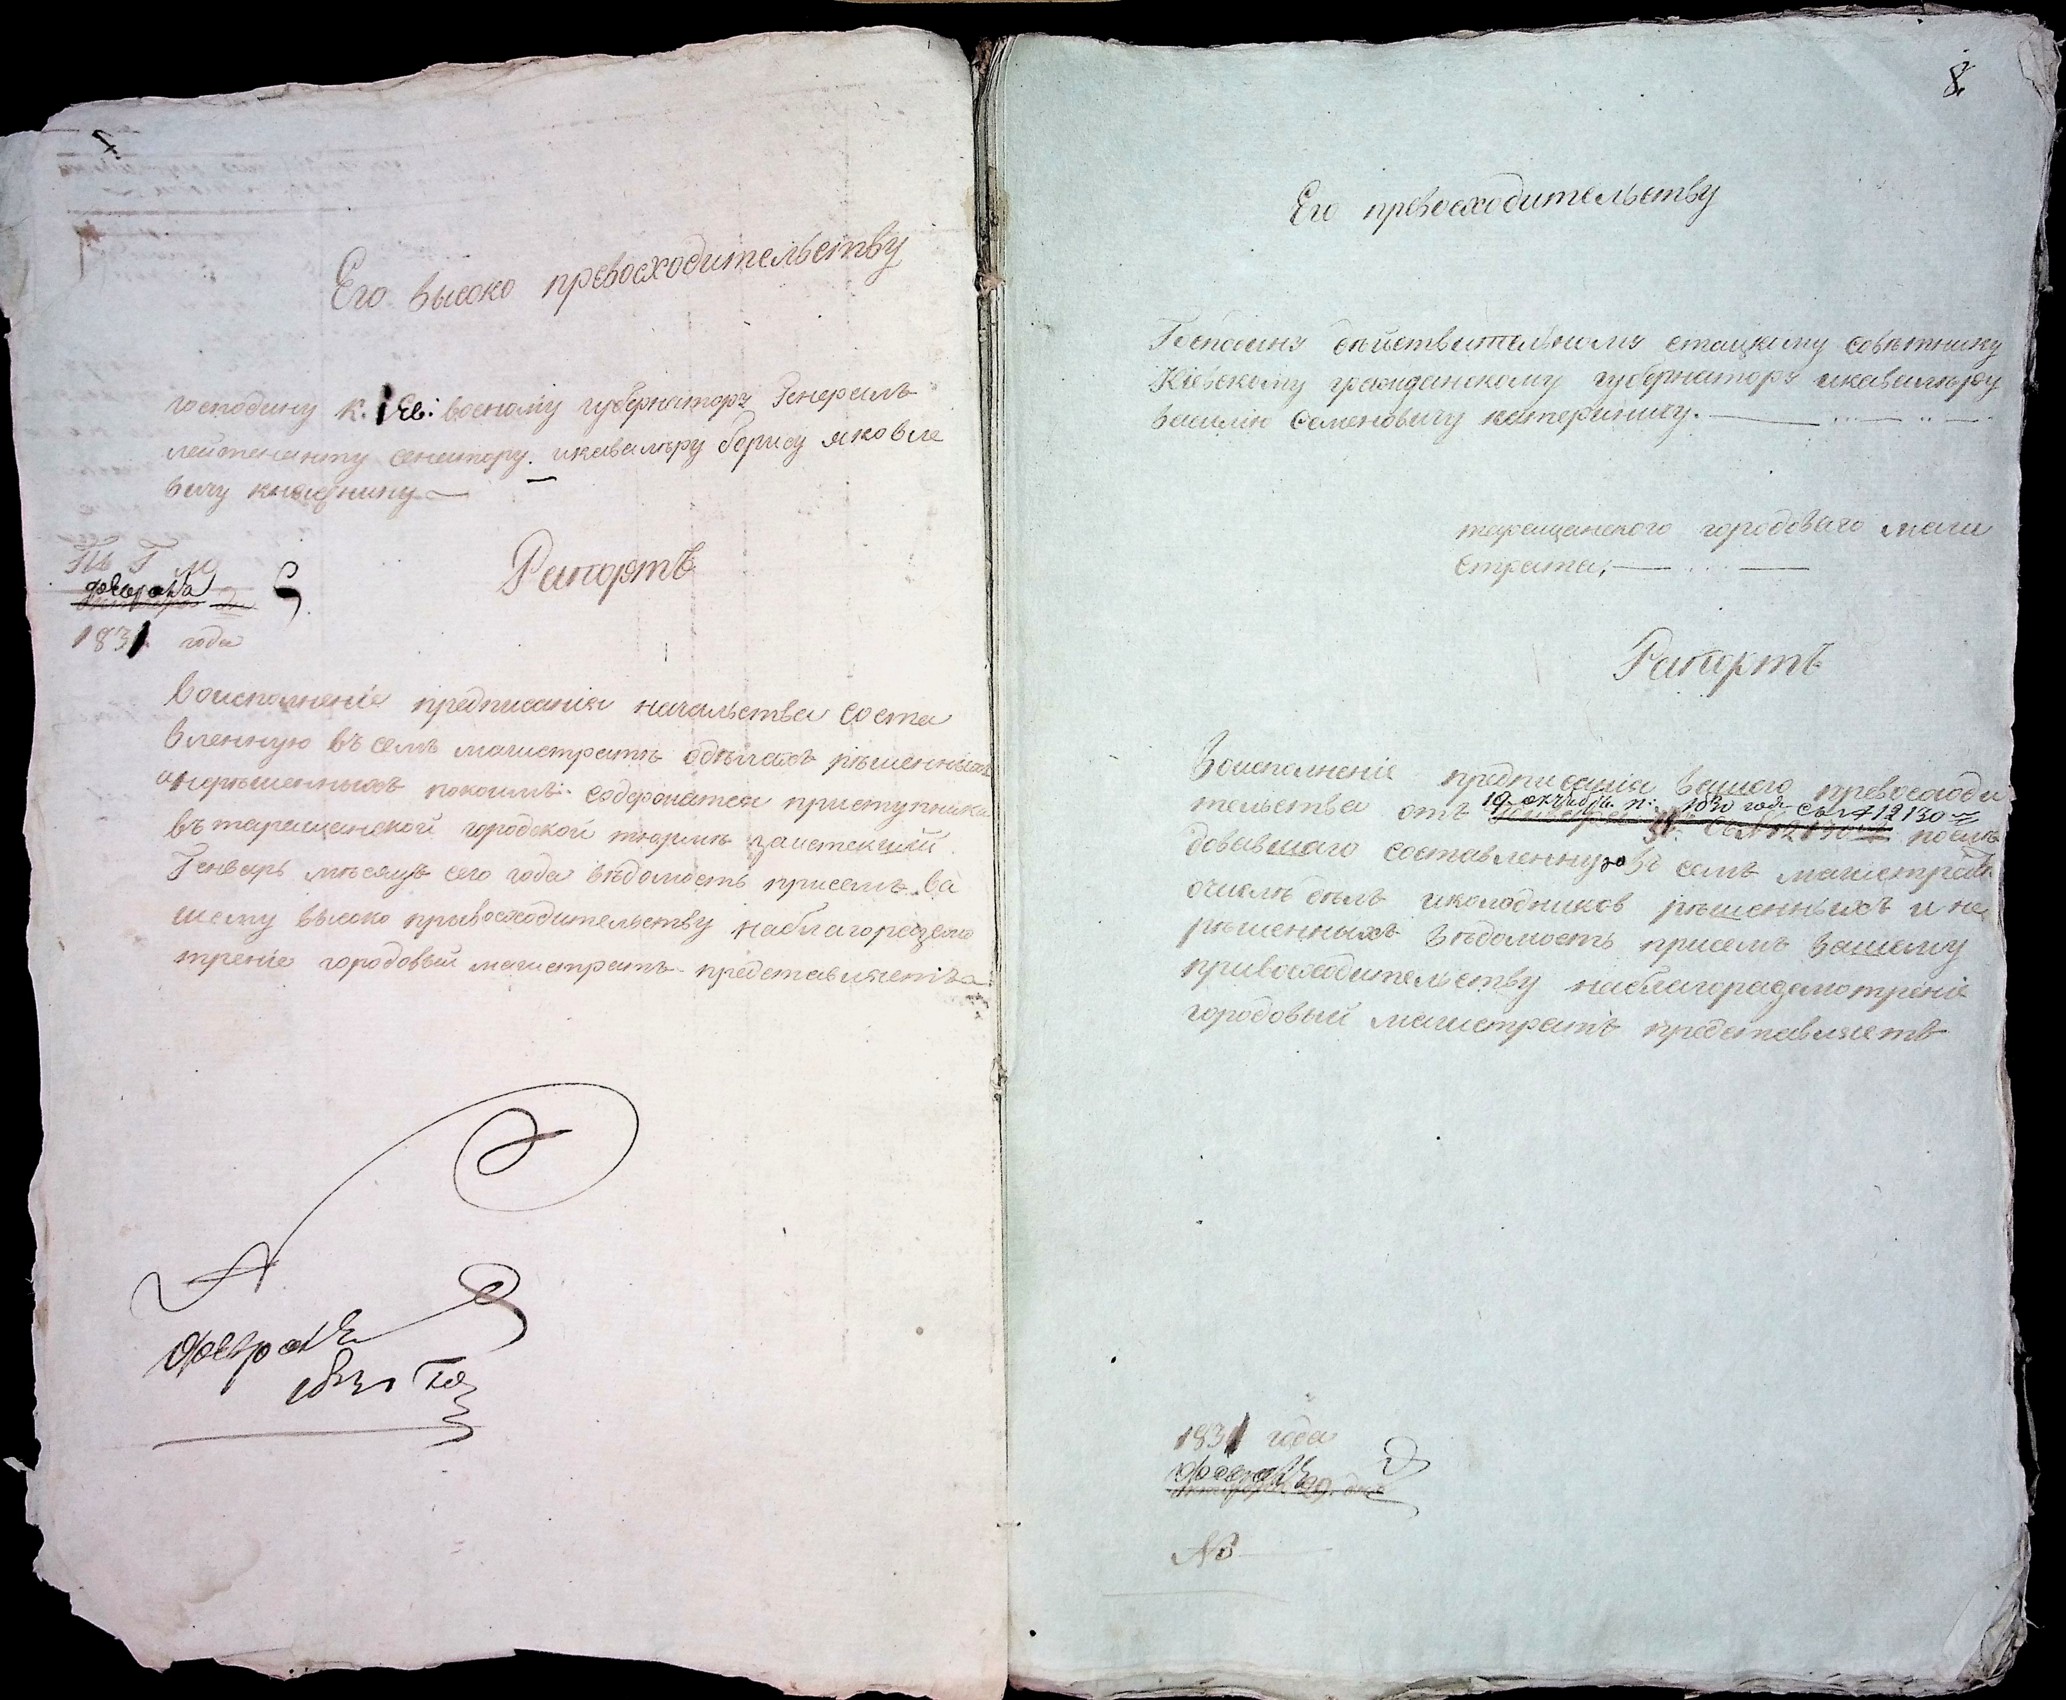 7
Его высоко превосходительству
господину К. Іев: военому губернатору Генералъ
лейтенанту сенатору. икавалѣру борису яковле
вичу княжнину
февраля
1831 года
Рапортъ
Воисполненіе предписанія начальства соста
вленную въ семъ магистратѣ одѣлахъ рѣшенныхъ
инерѣшенныхъ покоимъ содержатся приступники
въ таращанской городской тюрмѣ заистекшій
Генварь мѣсяцъ сего года вѣдомость присемъ ва
шему высоко привосходительству наблагоразсмо
треніе городовый магистратъ представляетъ
февраля
1831 го
8
Его превосходительству
Господину дѣйствительному стацкому совѣтнику
Кіевскому гражданскому губернатору икавалѣру
василію Семеновичу катериничу.
таращанского городоваго маги
страта,
Рапортъ
Воисполненіе предписанія вашого превосходи
тельства отъ 19 октября п: 1830 года съ № 12130
послѣ
довавшаго составленную въ семъ магистратѣ
очислѣ дѣлъ иколодников рѣшенныхъ и не
рѣшенныхъ вѣдомость присемъ вашему
привосходительству наблагоразсмотреніе
городовый магистратъ представляетъ
1831 года
февраля
№